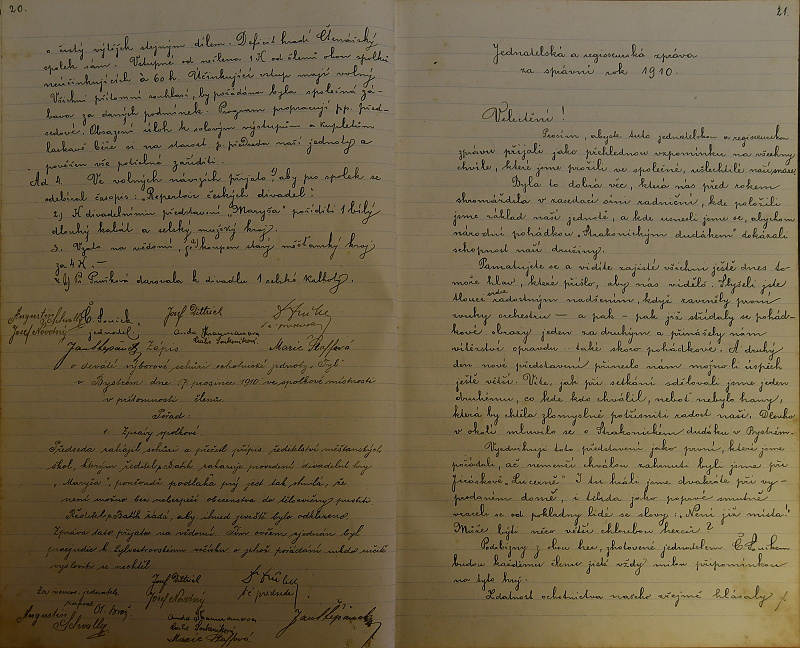 20.
o čistý výtěžek stejným dílem. Deficit hradí Čtenářský
spolek sám. Vstupné od večera 1 K od členů obou spolků
neúčinkujících à 60 h. Účinkující vstup mají volný.
Všichni přítomní souhlasí, by pořádána byla společná zá-
bava za daných podmínek. Program propracují pp. před-
sedové. Obsazení úloh k solovým výstupům a kupletům
laskavě béře si na starost p. předseda naší jednoty a
pověřen vše potřebné zaříditi.
Ad 4. Ve volných návrzích přijato: 1) aby pro spolek se
odebíral časopis: "Repertoir českých divadel".
2.) K divadelnímu představení "Maryša" pořídití 1 bílý
dlouhý kabát a selský mužský kroj.
3. Vzato na vědomí, že koupen starý měšťanský kroj
za 4 K. —
4) Pí Prušková darovala k divadlu 1 selské kalhoty.
Augustin Schulz
Josef Novotný
jednatel.
Josef Dittrich
Anda Naumanova
Jan Štěpánek
Marie Štaffová
Zápis
o deváté výborové schůzi ochotnické jednoty "Tyl"
v Bystrém dne 17. prosince 1910 ve spolkové místnosti
v přítomnosti členů.
Pořad:
1. Zprávy spolkové.
Předseda zahájil schůzi a přečetl přípis ředitelství měšťanských
škol, kterým ředitel p. Batík zakazuje provedení divadelní hry
"Maryša", poněvadž podlaha prý jest tak shnilá, že
není možno bez nebezpečí obecenstva do tělocvičny pustiti.
Ředitel p. Batík žádá, aby ihned jeviště bylo odklizeno.
Zpráva tato přijata na vědomí. Tím ovšem zjednán byl
k Sylvestrovském večírku o jehož pořádání nikdo určitě
vysloviti se nechtěl.
Za nemoc. jednatele
zapsal
Augustin
Schulz
Josef Dittrich
Josef Novotný
Anda Naumanova
Marie Štaffová
Jan Štěpánek
21.
Jednatelská a regisseurská zpráva
za správní rok 1910.
Velectění!
Prosím, abyste tuto jednatelskou a regisseurskou
zprávu přijali jako přehlednou vzpomínku na všechny
chvíle, které jsme prožili ve společné, ušlechtilé
Byla to dobrá věc, která nás před rokem
shromáždila v zasedací síni radniční, kde položili
jsme základ naší jednotě, a kde usnesli jsme se, abychom
národní pohádkou "Strakonickým dudákem" dokázali
schopnost naší družiny.
Pamatujete se a vidíte zajisté všichni ještě dnes to
moře hlav, které přišlo, aby nás vidělo. Slyšeli jste
tlouci srdce radostným nadšením, když zazněly první
zvuky orchestru — a pak — pak již střídaly se pohád-
kové obrazy jeden za druhým a přinášely nám
vítězství opravdu - také skoro pohádkové. A druhý
den nové představení přineslo nám možno-li úspěch
ještě větší. Víte, jak při setkání sdělovali jsme jeden
druhému, co kde kdo chválil, neboť nebylo hany,
která by chtěla zlomyslně potřísniti radost naši. Dlouho
v okolí mluvilo se o Strakonickém dudáku v Bystrém.
Vyzdvihuji toto představení jako první, které jsme
pořádali, ač nemenší chválou zahrnuti byli jsme při
Jiráskově "Lucerně". I tu hráli jsme dvakráte při vy-
prodaném domě, i tehdy jako poprvé smutně
vraceli se od pokladny lidé se slovy: "Není již místa!"
Může býti něco větší chloubou herců?
Podobizny z obou her, zhotovené jednatelem
budou každému členu jistě vždy milou připomínkou
na tyto hry.
Zdatnost ochotnictva našeho zřejmě hlásaly